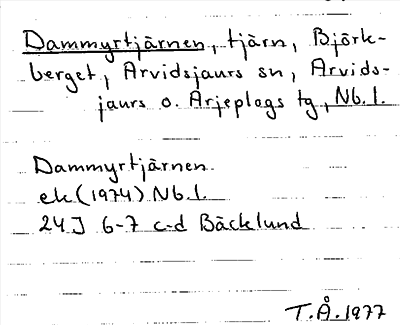 Dammyrtjärnen, tjärn, Björk-
berget, Arvidsjaurs sn, Arvids-
jaurs o. Arjeplogs tg, Nb. l.
Dammyrtjärnen
ek (1974) Nb. l.
24J 6-7 c-d Bäcklund
T.Å. 1977